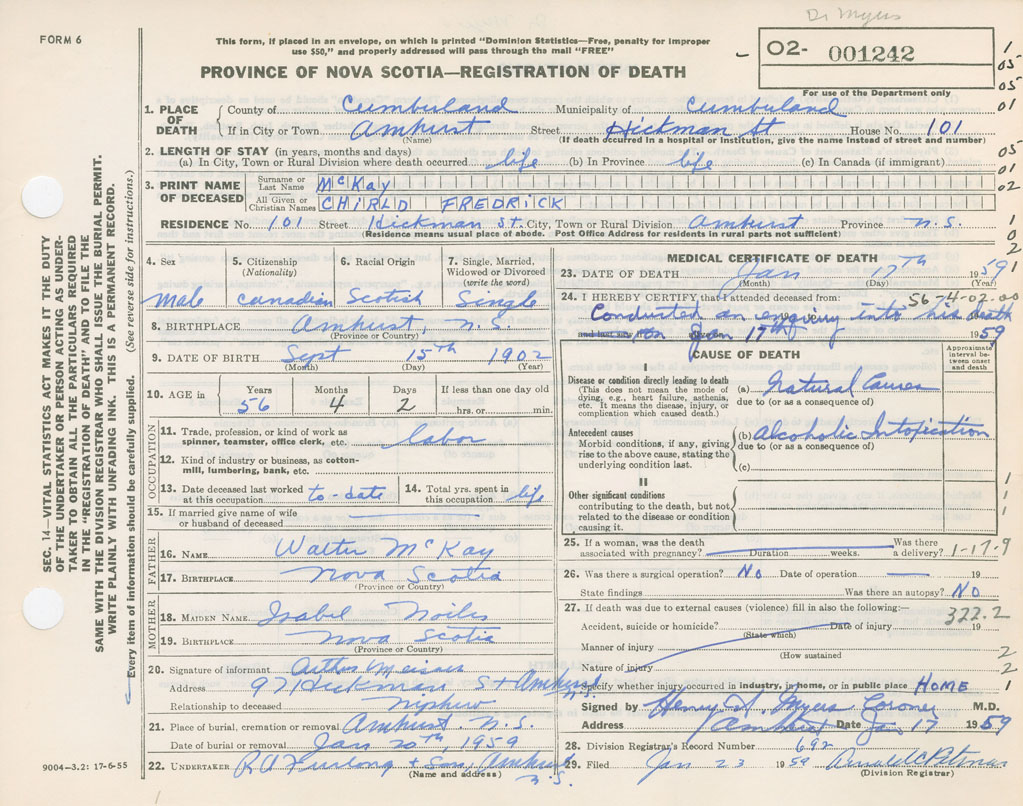 Dr Myers
FORM 6
This form, if placed in an envelope, on which is printed "Dominion Statistics—Free, penalty for improper
use $50," and properly addressed will pass through the mail "FREE"
O2- 001242
For use of the Department only
PROVINCE OF NOVA SCOTIA—REGISTRATION OF DEATH
1
05
05
01
05
01
02
1
0
2
1
SEC. 14—VITAL STATISTICS ACT MAKES IT THE DUTY
OF THE UNDERTAKER OR PERSON ACTING AS UNDER-
TAKER TO OBTAIN ALL THE PARTICULARS REQUIRED
IN THE "REGISTRATION OF DEATH" AND TO FILE THE
SAME WITH THE DIVISION REGISTRAR WHO SHALL ISSUE THE BURIAL PERMIT.
WRITE PLAINLY WITH UNFADING INK. THIS IS A PERMANENT RECORD.
Every item of information should be carefully supplied. (See reverse side for instructions.)
1. PLACE OF DEATH County of Cumberland Municipality of Cumberland
If in City or Town Amherst Street Hickman St House No. 101
(Name) (If death occurred in a hospital or institution, give the name instead of street and number)
2. LENGTH OF STAY (in years, months and days)
(a) In City, Town or Rural Division where death occurred life (b) In Province life (c) In Canada (if immigrant)
3. PRINT NAME OF DECEASED Surname or Last Name McKay
All Given or Christian Names CHIRLD FREDRICK
RESIDENCE No. 101 Street Hickman St. City, Town or Rural Division Amherst Province N.S.
(Residence means usual place of abode. Post Office Address for residents in rural parts not sufficient)
4. Sex 5. Citizenship (Nationality) 6. Racial Origin 7. Single, Married, Widowed or Divorced (write the word)
Male Canadian Scotish Single
8. BIRTHPLACE Amherst, N.S.
(Province or Country)
9. DATE OF BIRTH Sept 15th 1902
(Month) (Day) (Year)
10. AGE in Years Months Days If less than one day old
56 4 2 hrs. or min.
OCCUPATION
11. Trade, profession, or kind of work as
spinner, teamster, office clerk, etc. labor
12. Kind of industry or business, as cotton-
mill, lumbering, bank, etc.
13. Date deceased last worked at this occupation to-date 14. Total yrs. spent in this occupation life
15. If married give name of wife
or husband of deceased
FATHER
16. NAME Walter McKay
17. BIRTHPLACE Nova Scotia
(Province or Country)
MOTHER
18. MAIDEN NAME Isabel Noiles
19. BIRTHPLACE Nova Scotia
(Province or Country)
20. Signature of informant Arthur Meisner
Address 97 Hickman St Amherst N.S.
Relationship to deceased niphew
21. Place of burial, cremation or removal Amherst N.S.
Date of burial or removal Jan 20th, 1959
22. UNDERTAKER R A Furlong + Son, Amherst
(Name and address) N.S.
9004—3.2: 17-6-55
MEDICAL CERTIFICATE OF DEATH
23. DATE OF DEATH Jan 17th 1959
(Month) (Day) (Year)
24. I HEREBY CERTIFY that I attended deceased from: 56-4-02.00
Conducted an enquiry into his death
and last saw h on Jan 17th 1959
CAUSE OF DEATH
Approximate interval between onset and death
I
Disease or condition directly leading to death
(This does not mean the mode of
dying, e.g., heart failure, asthenia,
etc. It means the disease, injury, or
complication which caused death.)
(a) Natural Causes
due to (or as a consequence of)
Antecedent causes
Morbid conditions, if any, giving
rise to the above cause, stating the
underlying condition last.
(b) Alcoholic Intoxication
due to (or as a consequence of)
(c)
II
Other significant conditions
contributing to the death, but not
related to the disease or condition
causing it.
1
1
1
25. If a woman, was the death
associated with pregnancy? Duration weeks. Was there a delivery? 1-17-9
26. Was there a surgical operation? No Date of operation 19
State findings Was there an autopsy? No
27. If death was due to external causes (violence) fill in also the following:— 322.2
Accident, suicide or homicide? Date of injury 19
(State which)
Manner of injury 2
(How sustained)
Nature of injury 2
Specify whether injury occurred in industry, in home, or in public place HOME 1
Signed by Henry A. Myers Coroner M.D.
Address Amherst Date Jan 17 1959
28. Division Registrar's Record Number 692
29. Filed Jan 23 1959
(Division Registrar)